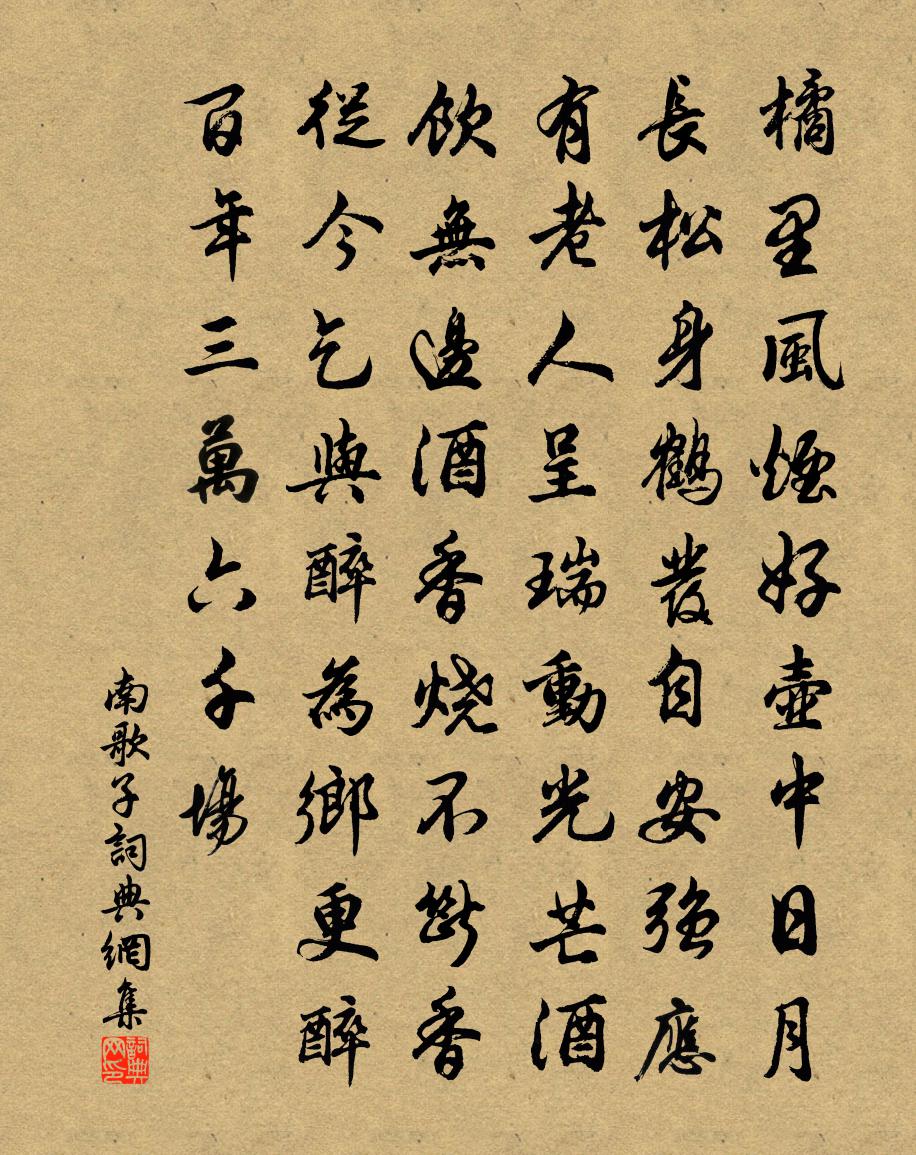 橘里風煙好壺中日月
長松身鶴發自安強應
有老人呈瑞動光芒酒
飲無邊酒香燒不斷香
從今乞與醉為鄉更醉
百年三萬六千場
南歌子詞典網集
詞典网印